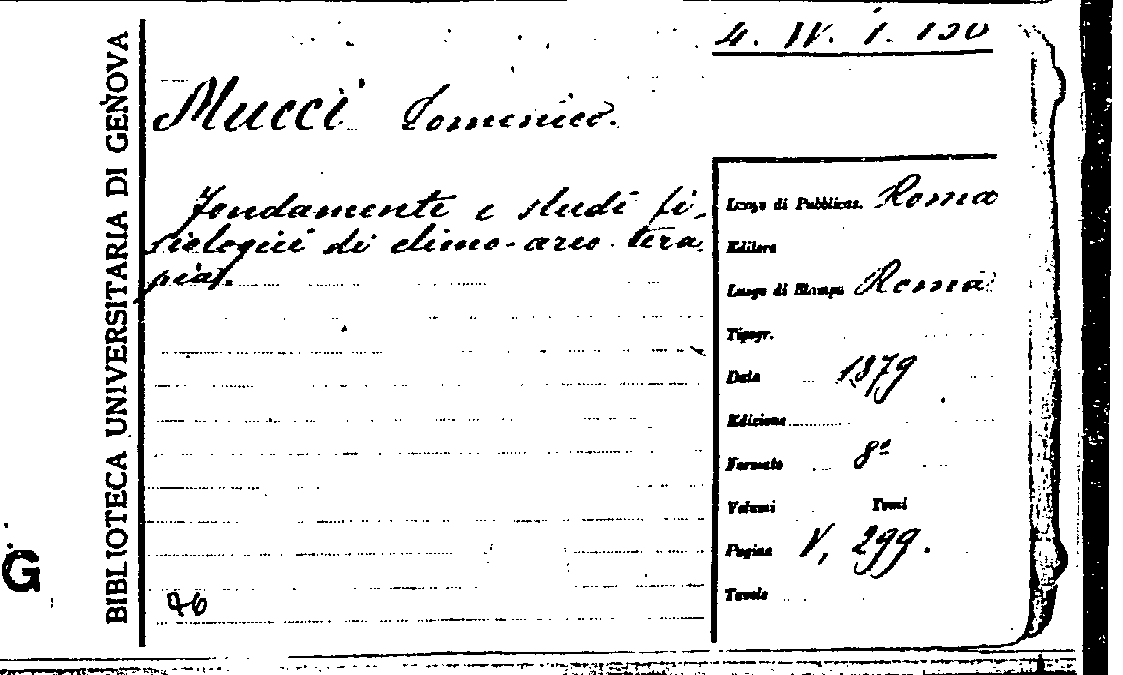 4. IV. I. 130
BIBLIOTECA UNIVERSITARIA DI GENOVA
Mucci Domenico.
Fondamente e studi fi-
siologici di climo-aereo-tera
pia.
Luogo di Pubblicaz. Roma
Editore
Luogo di Stampa Roma
Tipogr.
Data 1879
Edizione
Formato 8º
Volumi Tomi
Pagine V, 299.
Tavole
G